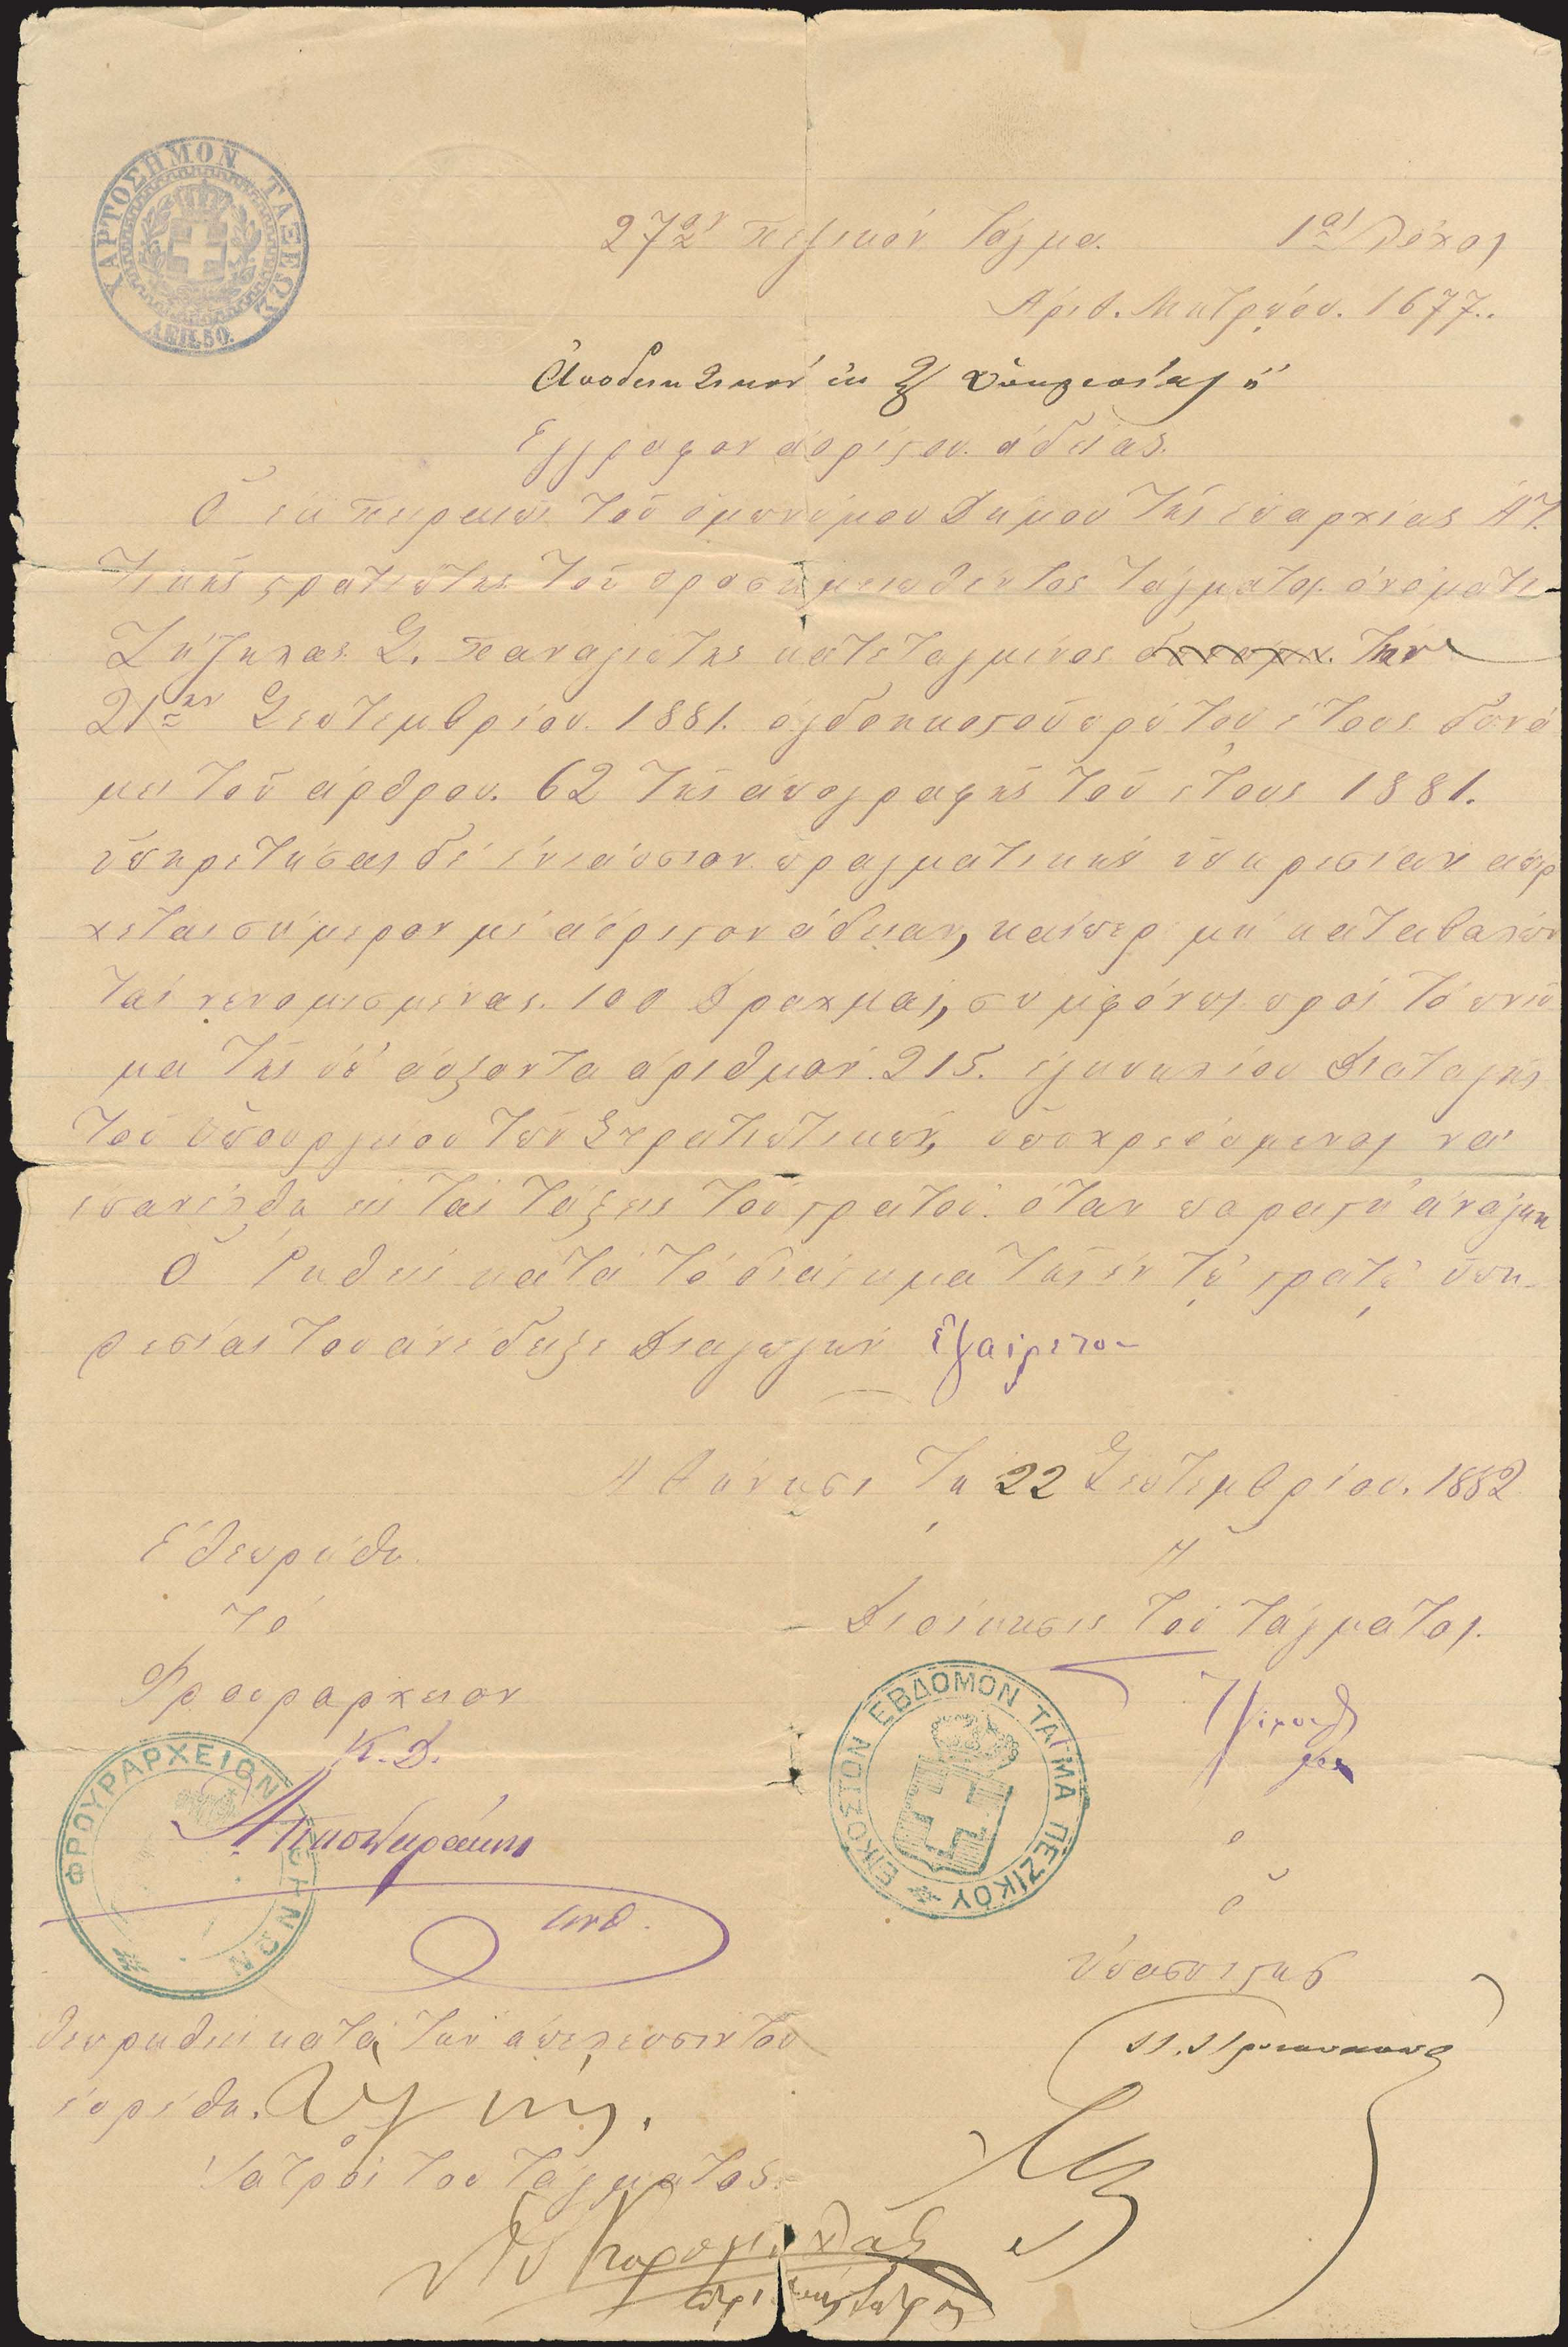 ΧΑΡΤΟΣΗΜΟΝ ΤΑΞΕΩΣ
ΛΕΠ. 50.
27ον πεζικόν Τάγμα. 1ος Λόχος
Αριθ. Μητρώου. 1677.
Αποδεικτικόν εκ της Υπηρεσίας ή
Εγγραφον αορίστου. αδείας.
Ο εκ Πειραιώς του ομωνύμου Δήμου της επαρχίας Ατ
τικής στρατιώτης του προσημειωθέντος Τάγματος ονόματι
Σ. Παναγιώτης κατεταγμένος την
21ην Σεπτεμβρίου. 1881. ογδοηκοστού πρώτου έτους δυνά
μει του άρθρου. 62 της απογραφής του έτους 1881.
υπηρετήσας δε ενιαύσιον πραγματικήν υπηρεσίαν απέρ
χεται σήμερον με αόριστον άδειαν, καίπερ μη καταβαλών
τας νενομισμένας. 100 Δραχμάς, συμφώνως προς το πνεύ
μα της υπ' αύξοντα αριθμόν. 215. εγκυκλίου Διαταγής
του Υπουργείου των Στρατιωτικών, υποχρεούμενος να
επανέλθη εις τας τάξεις του στρατού. όταν παραστή ανάγκη
Ο Ρηθείς κατά το διάστημα της εν τω στρατώ υπη-
ρεσίας του ανέδειξε Διαγωγήν Εξαίρετον
Αθήνησι τη 22 Σεπτεμβρίου. 1882
Εθεωρήθη.
Το
Φρουραρχείον
Κ. Δ.
ΦΡΟΥΡΑΡΧΕΙΟΝ ΑΘΗΝΩΝ
Η
Διοίκησις του Τάγματος.
ΕΙΚΟΣΤΟΝ ΕΒΔΟΜΟΝ ΤΑΓΜΑ ΠΕΖΙΚΟΥ
Ο
Υπασπιστής
Θεωρηθείς κατά την απέλευσιν του
ευρέθη. Υγιής.
Ιατρός του Τάγματος.